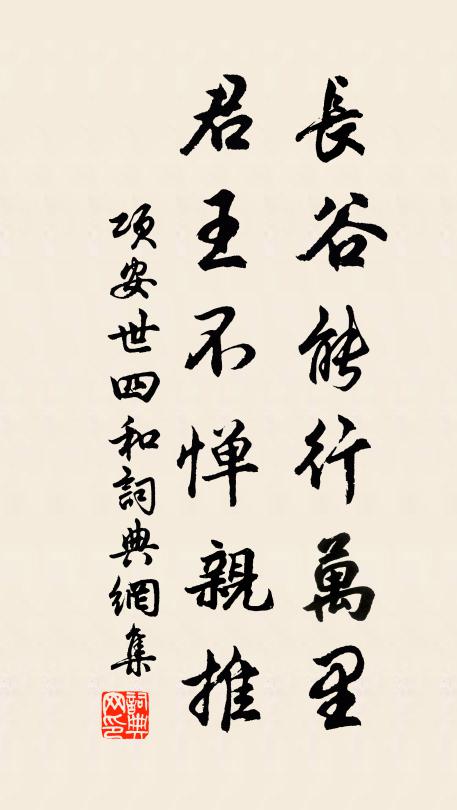 長谷能行萬里
君王不惮親推
項安世四和詞典網集
詞典
网印